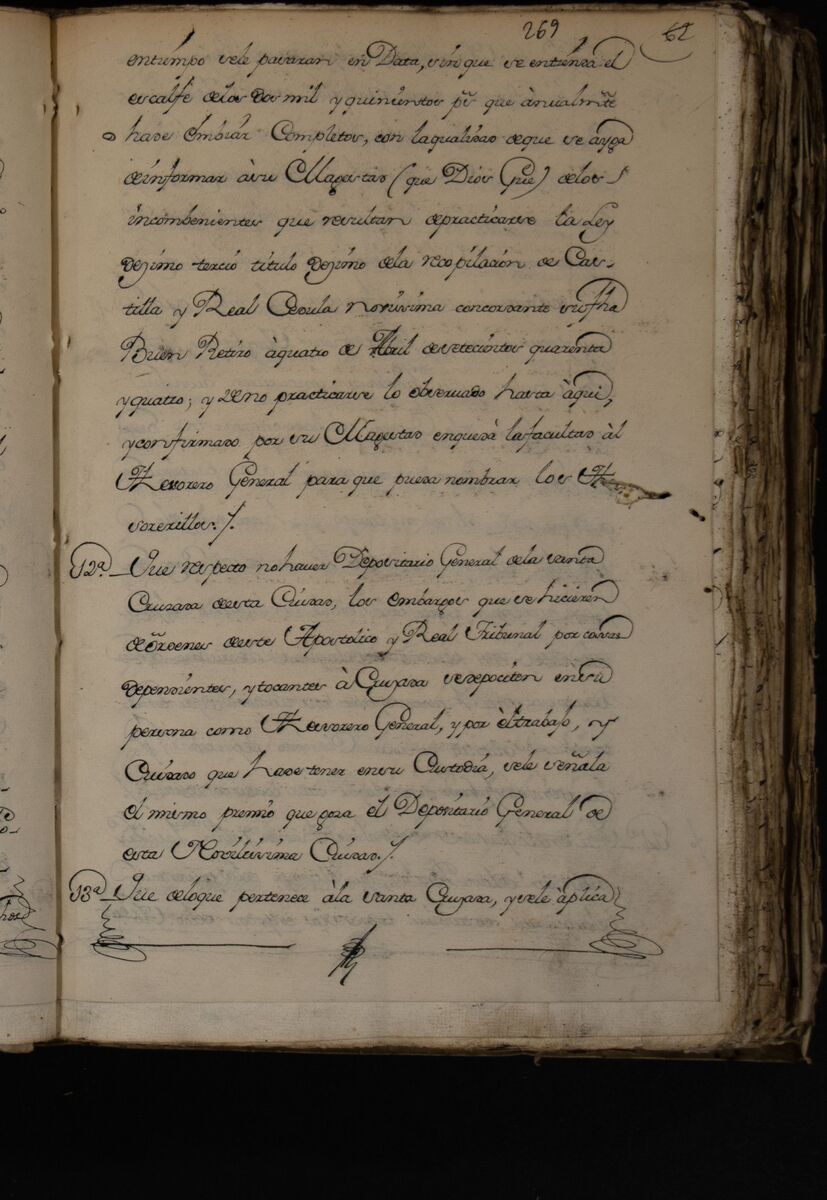 269
62
entiempo sele pasaran en Data, sin que se entienda el
escalfe delos dos mil y quinientos ps. que ànualmte
hade embiar Completos, con la qualidad deque se aya
deinformar àsu Magestad (que Dios Gue) delos
incombenientes que resultan depracticarse la Ley
dezimo tercio titulo dezimo dela recopilacion de Cas-
tilla y Real Cedula novisima concordante sufha
Buen Retiro àquatro de Abril desetecientos quarenta
yquatro; y deno practicarse lo observado hasta àqui,
yconfirmado por su Magestad enquedà lafacultad àl
Thesorero General para que pueda nombrar los The
sorerillos./.
12a. Que respecto nohaver Depositario General dela santa
Cruzada deesta Ciudad, los embargos que sehicieren
deòrdenes deeste Apostolico y Real Tribunal por cosas
dependientes, ytocantes à Cruzada sedepociten ensu
persona como Thesorero General, y por èltrabajo, y
Cuidado que hadetener ensu Custodia, sele señala
el mismo premio que goza el Depositario General de
esta Nobilisima Ciudad./.
13a. Que deloque pertenece àla santa Cruzada, ysele àplica